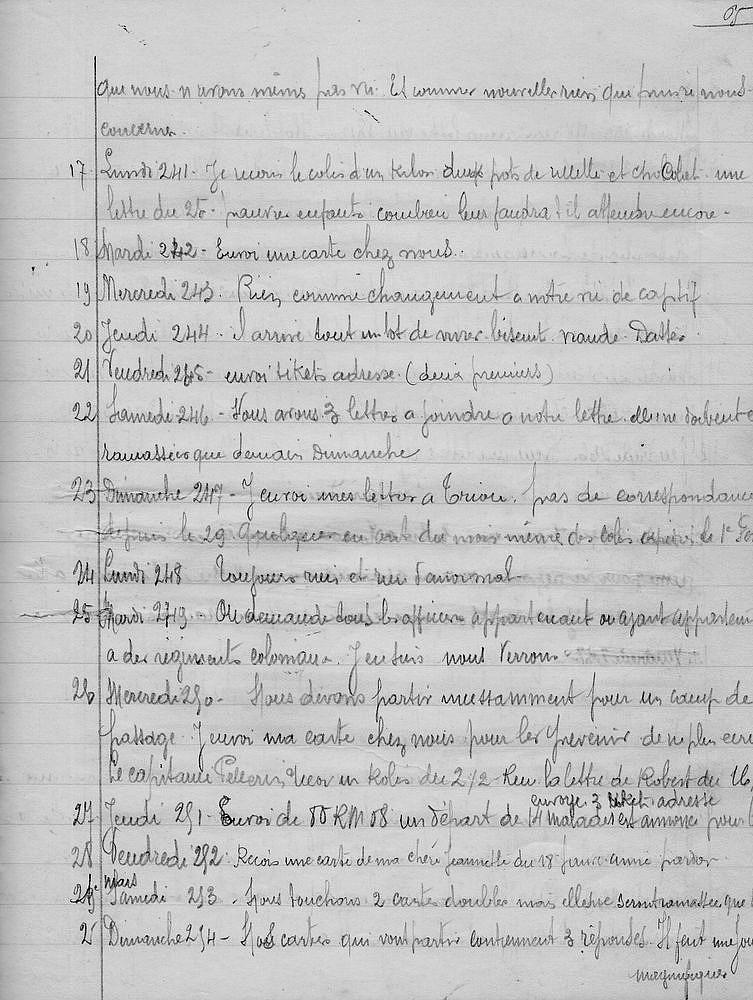 que nous n'avons même pas vu. Et comme nouvelles rien qui puisse nous
concerner.
17 Lundi 241. Je reçois le colis d'un kilos deux pots de et chocolat une
lettre du 25. pauvres enfants combien leur faudra t'il attendre encore.
18 Mardi 242 - Envoi une carte chez nous.
19 Mercredi 243. Rien comme changement a notre vie de captif
20 Jeudi 244. il arrive tout un lot de vivres biscuit viande Dattes
21 Vendredi 245 - envoi tikets adresse (deux premiers)
22 Samedi 246 - Nous avons 3 lettres a joindre a notre lettre elle ne doivent e
ramassées que demain Dimanche
23 Dimanche 247 - J'envoi mes lettres a . pas de correspondance
depuis le 29 Quelques en ont du mois même des colis le 1e
24 Lundi 248 Toujours rien et rien d'anormal
25 Mardi 2749 - On demande tous les officiers appartenant ou ayant appartenu
a des régiments coloniaux. J'en suis nous verrons
26 Mercredi 250 - Nous devons partir incessamment pour un camp de
passage. J'envoi ma carte chez nous pour les prévenir de ne plus ecri
Le capitaine un kolis du 2/2 - Reçu la lettre de Robert du 16
envoye 3 tiket adresse
27 Jeudi 251 - Envoi de un départ de 14 malades est annonce pour l
28 Vendredi 252. Recois une carte de ma chère Jeannette du 18 janv.
mars
1e Samedi 253. Nous touchons 2 cartes doubles mais elles ne seront ramassées que
2 Dimanche 254 - Nos cartes qui vont partir contiennent 3 réponses. Il fait une jou
magnifique